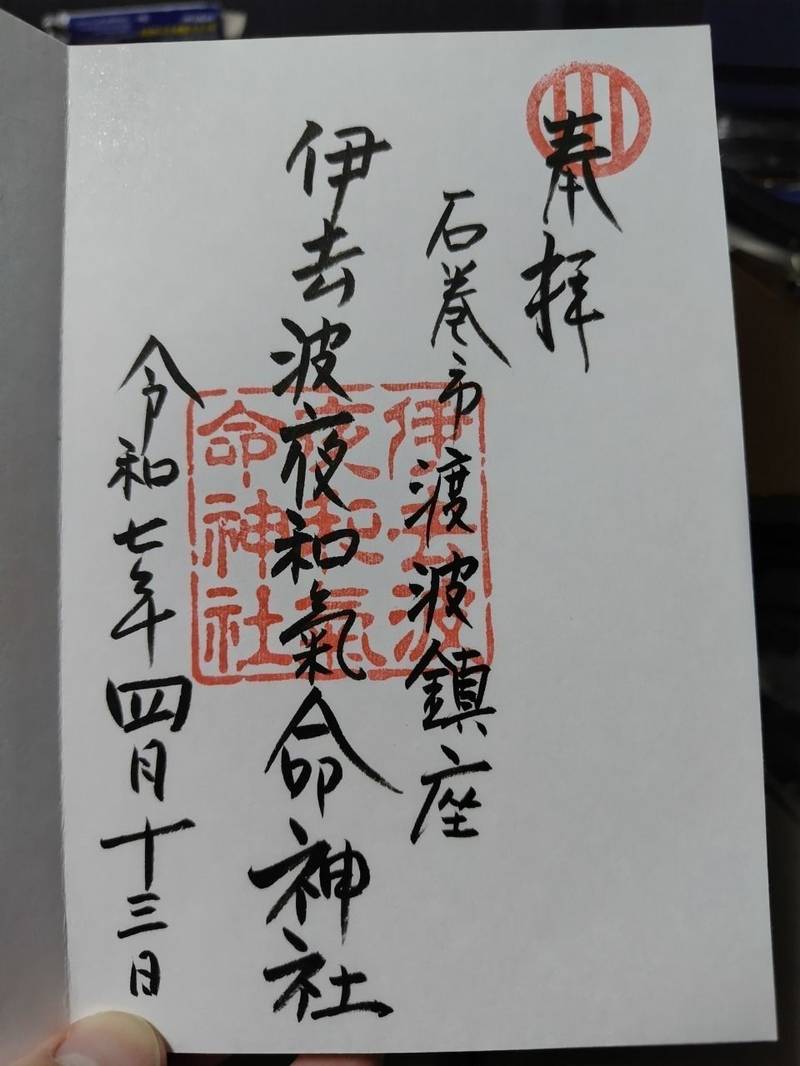 奉拝
石巻市渡波鎮座
伊去波夜和氣命神社
令和七年四月十三日
伊去波
夜和氣
命神社